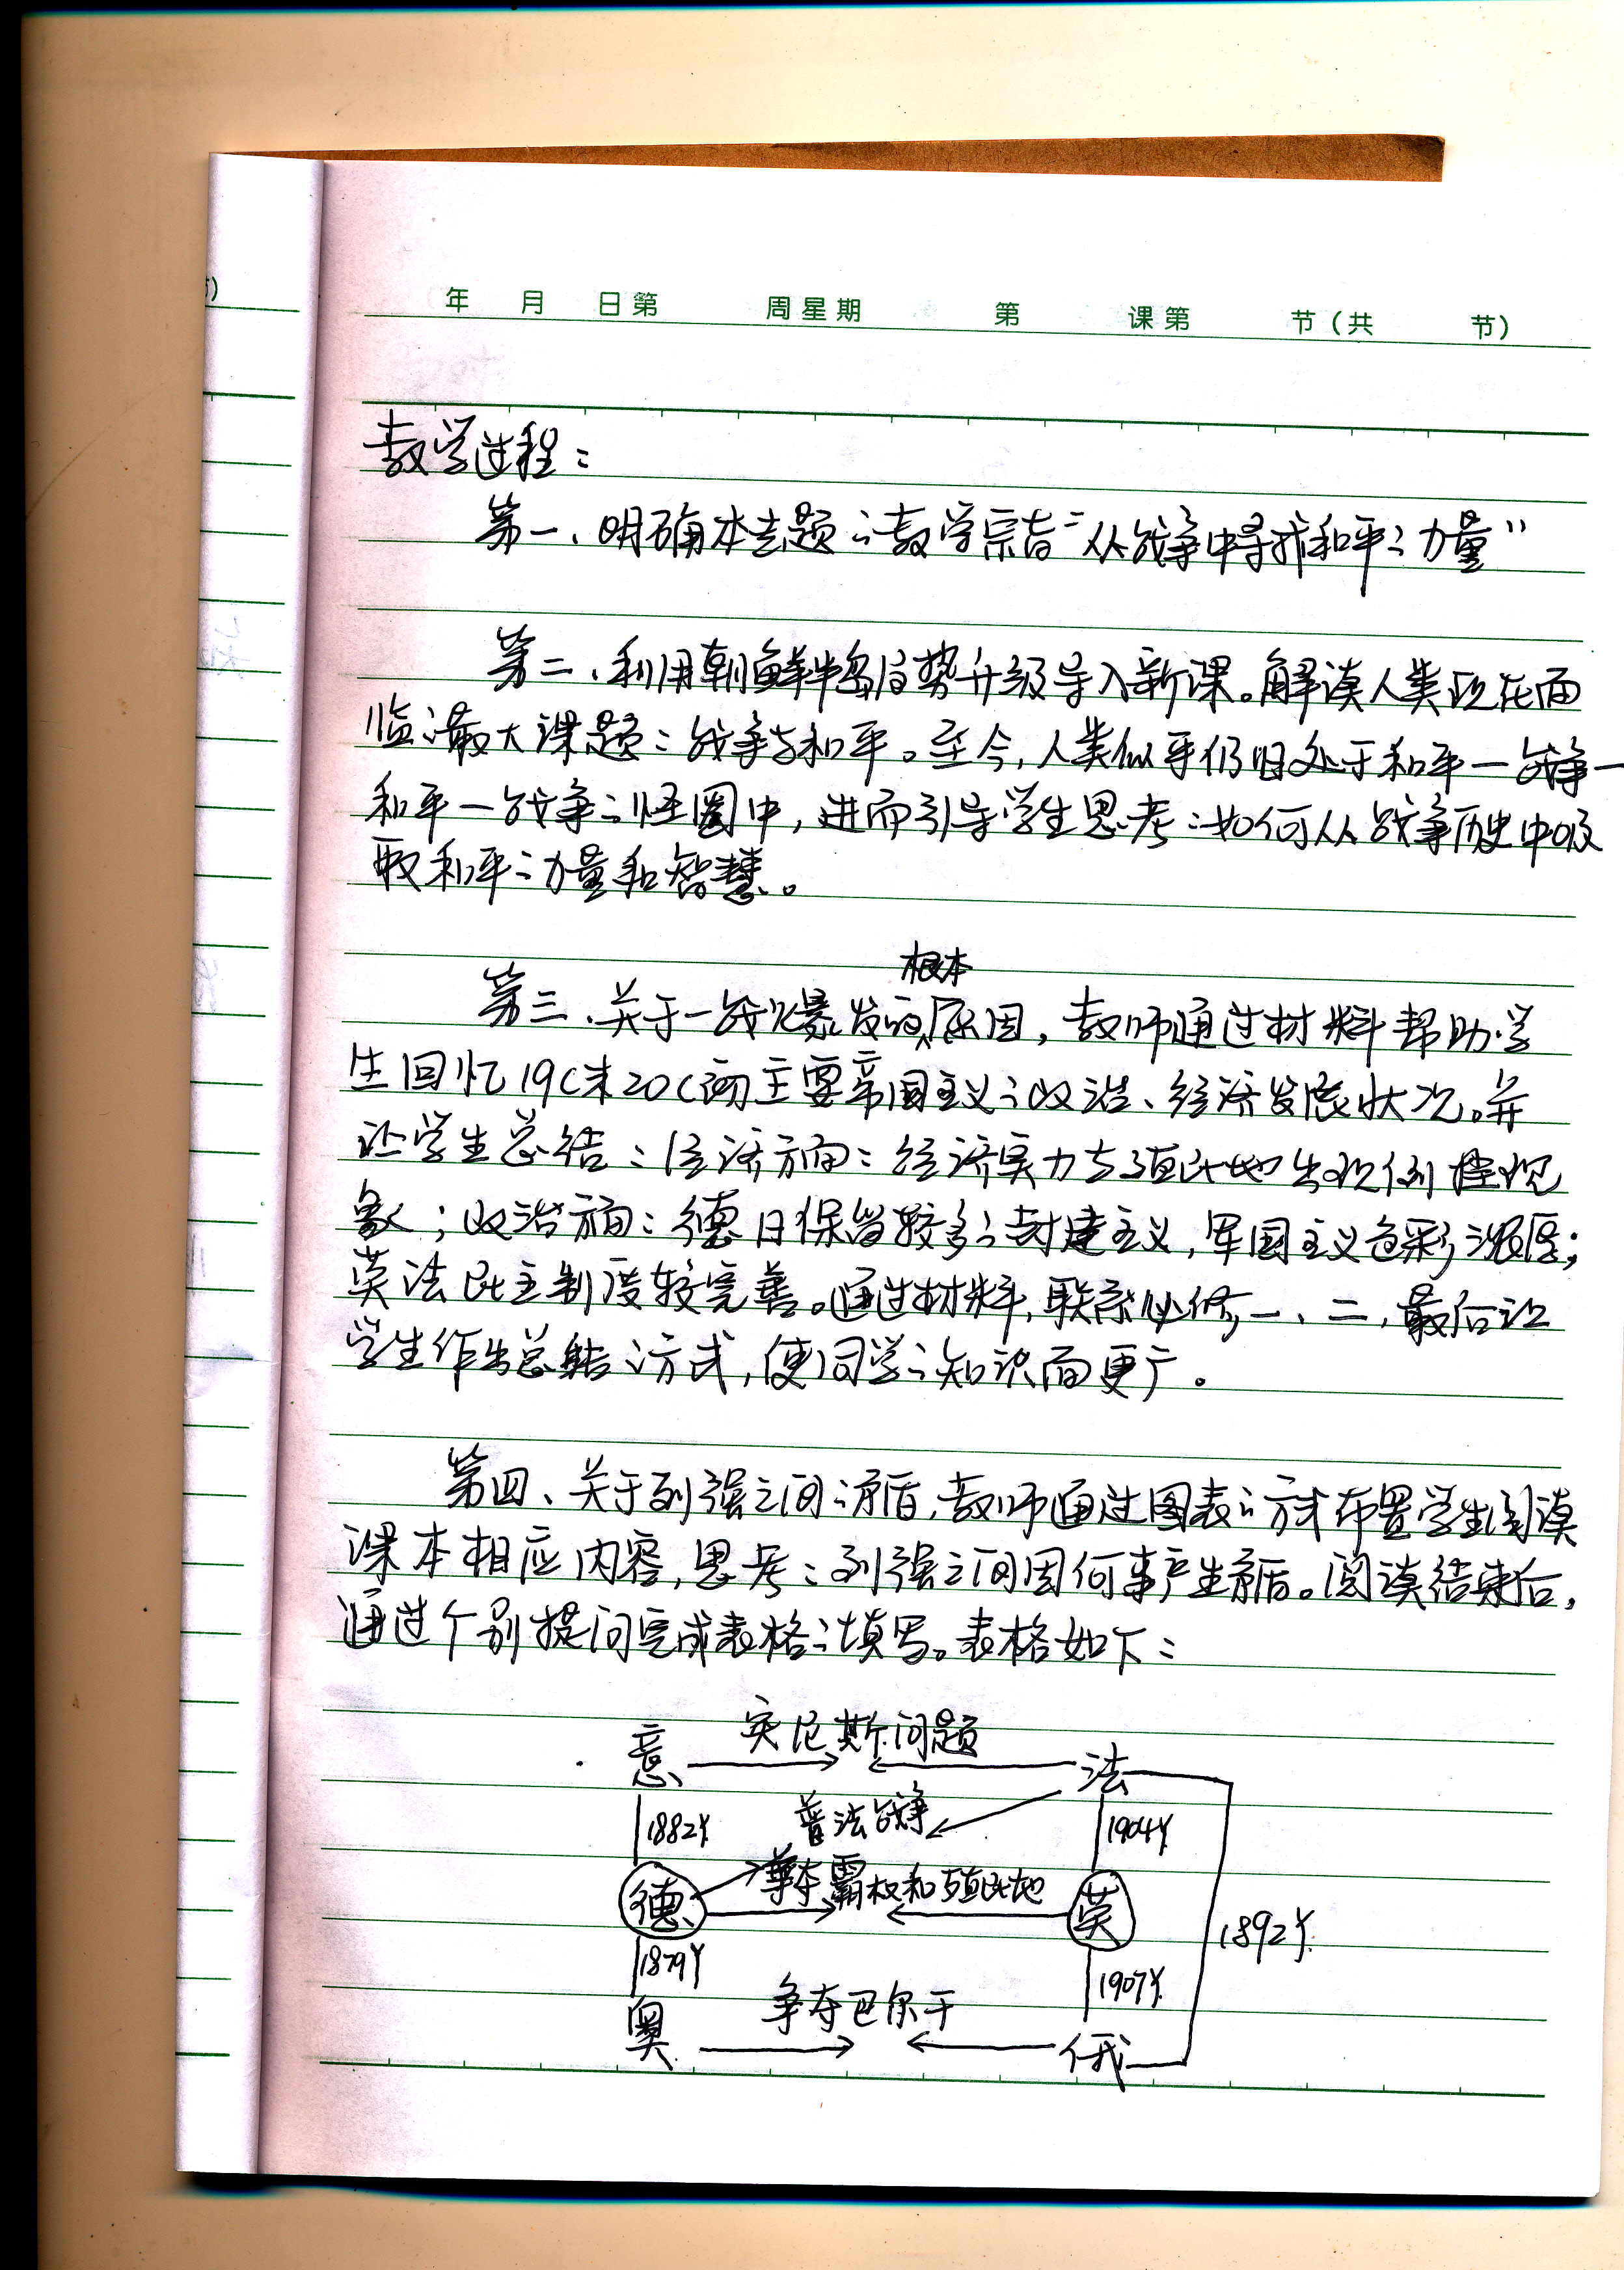 节）
年 月 日 第 周 星期 第 课 第 节（共 节）
教学过程：
第一、明确本专题的教学宗旨“从战争中寻求和平的力量”
第二、利用朝鲜半岛局势升级导入新课。解读人类现在面
临的最大课题：战争与和平。至今，人类似乎仍旧处于和平—战争—
和平—战争的怪圈中，进而引导学生思考：如何从战争历史中吸
取和平的力量和智慧。
根本
第三、关于一战爆发的原因，教师通过材料帮助学
生回忆19C末20C初主要帝国主义的政治、经济发展状况。并
让学生总结：经济方面：经济实力与殖民地出现倒挂现
象；政治方面：德日保留较多的封建主义，军国主义色彩浓厚；
英法民主制度较完善。通过材料，联系必修一、二，最后让
学生作出总结的方式，使同学的知识面更广。
第四、关于列强之间的矛盾，教师通过图表的方式布置学生阅读
课本相应内容，思考：列强之间因何事产生矛盾。阅读结束后，
通过个别提问完成表格的填写。表格如下：
意 突尼斯问题 法
1882年 普法战争 1904年
德 争夺霸权和殖民地 英
1892年
1879年 1907年
奥 争夺巴尔干 俄